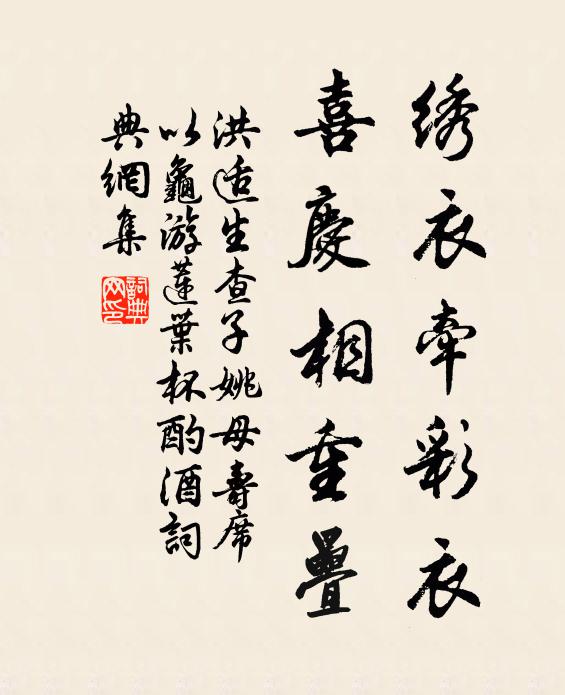 绣衣牵彩衣
喜慶相重疊
洪适生查子姚母壽席
以龜游蓮葉杯酌酒詞
典網集
詞典网印